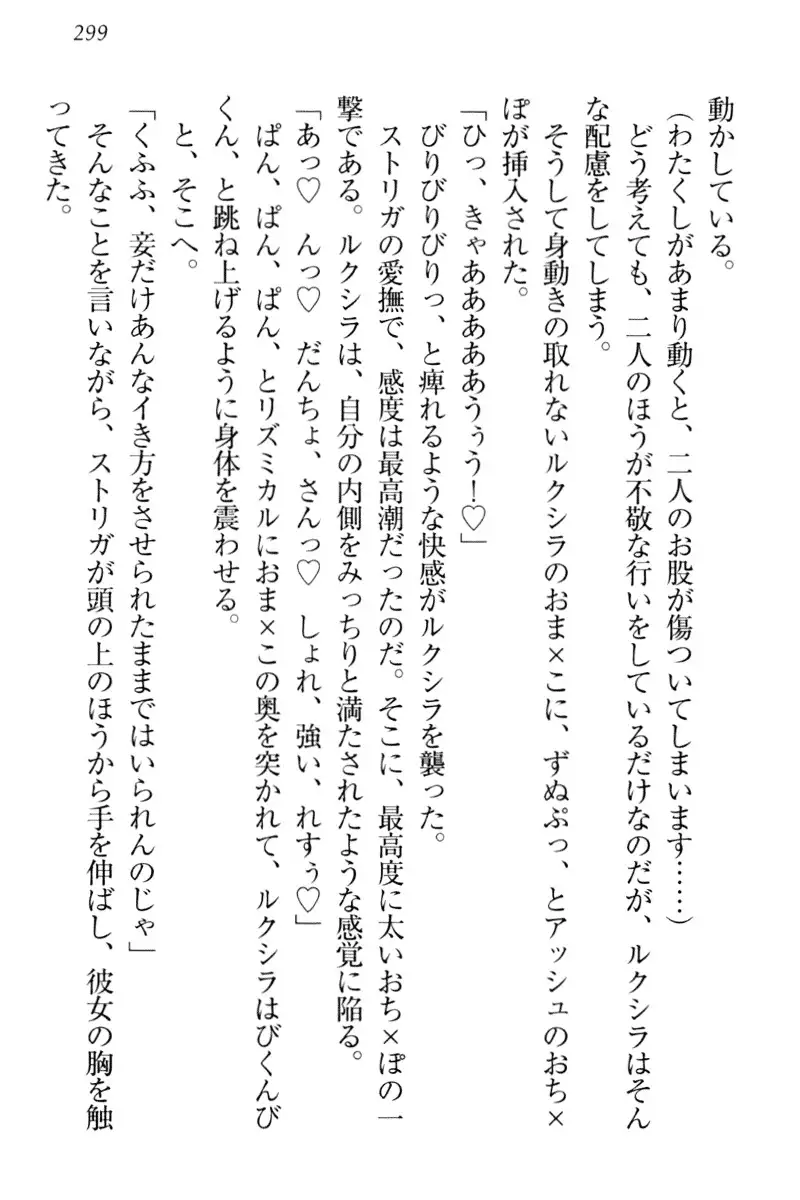 299
動かしている。
（わたくしがあまり動くと、二人のお股が傷ついてしまいます……）
どう考えても、二人のほうが不敬な行いをしているだけなのだが、ルクシラはそん
な配慮をしてしまう。
そうして身動きの取れないルクシラのおま×こに、ずぬぷっ、とアッシュのおち×
ぽが挿入された。
「ひっ、きゃあああああうぅう！♡」
びりびりびりっ、と痺れるような快感がルクシラを襲った。
ストリガの愛撫で、感度は最高潮だったのだ。そこに、最高度に太いおち×ぽの一
撃である。ルクシラは、自分の内側をみっちりと満たされたような感覚に陥る。
「あっ♡　んっ♡　だんちょ、さんっ♡　しょれ、強い、れすぅ♡」
ぱん、ぱん、ぱん、とリズミカルにおま×この奥を突かれて、ルクシラはびくんび
くん、と跳ね上げるように身体を震わせる。
と、そこへ。
「くふふ、妾だけあんなイき方をさせられたままではいられんのじゃ」
そんなことを言いながら、ストリガが頭の上のほうから手を伸ばし、彼女の胸を触
ってきた。